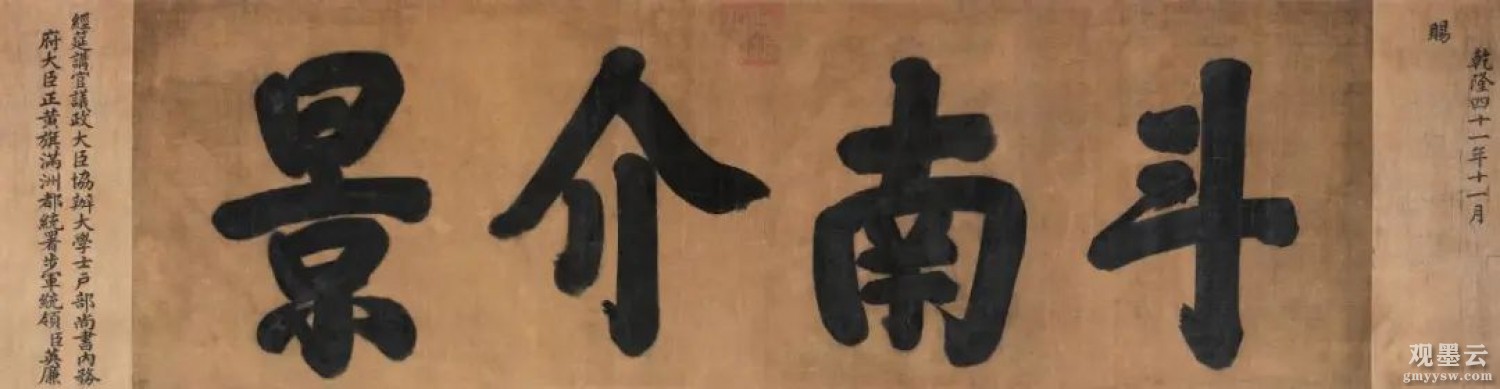 乾隆四十一年十一月
賜
斗南介景
經筵講官議政大臣協辦大學士戶部尚書內務
府大臣正黃旗滿洲都統署步軍統領臣英廉
观墨云
gmyysw.com